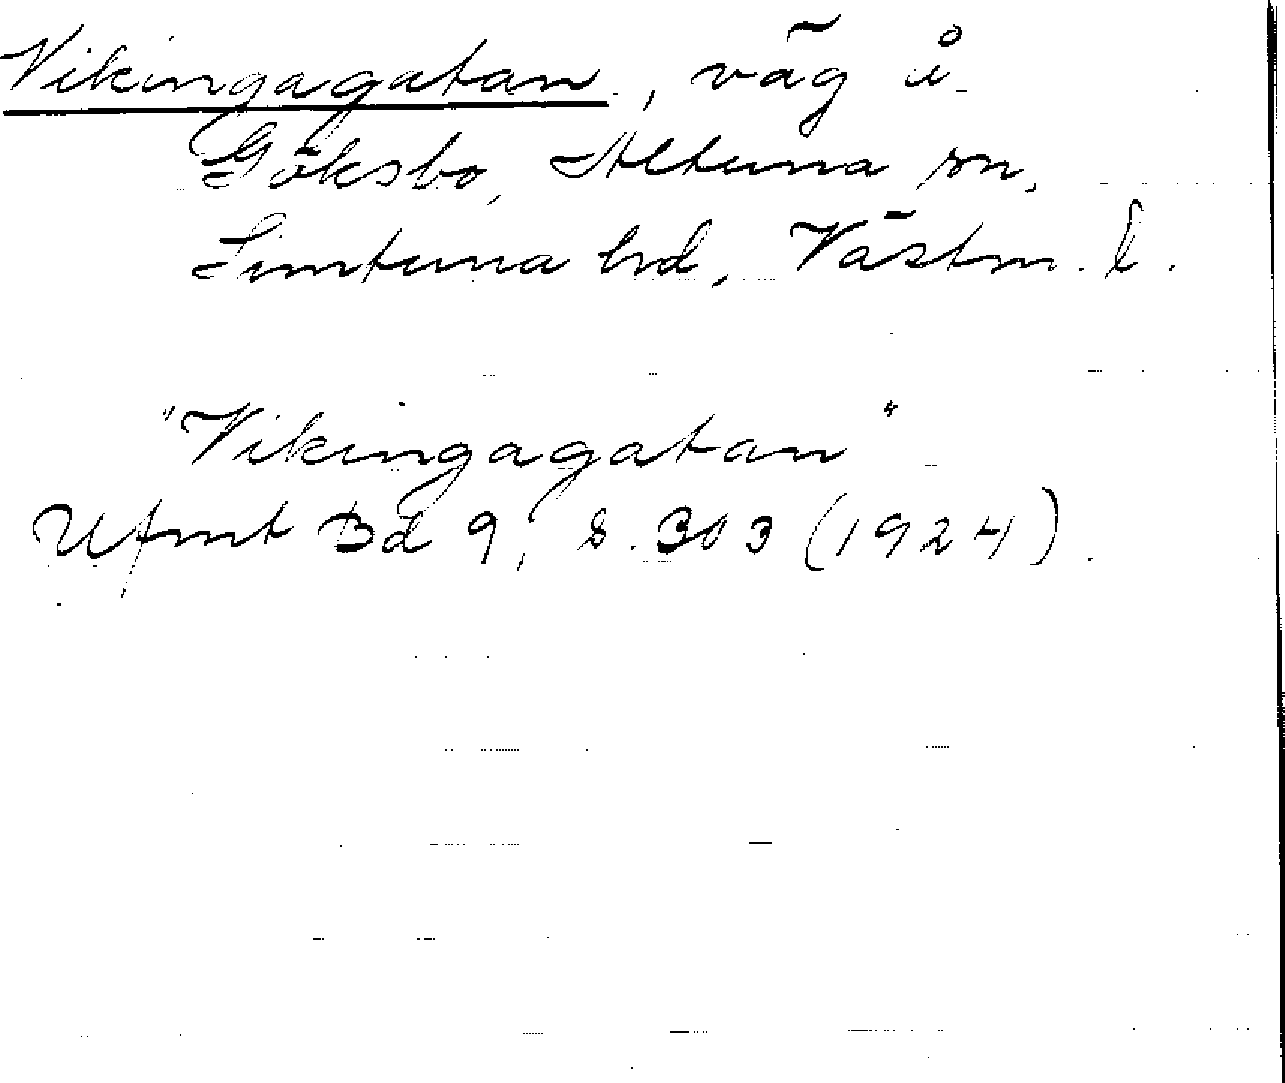 Vikingagatan, väg å
Göksbo, Altuna sn,
Simtuna hd, Västm. l.
"Vikingagatan"
Ufmt Bd 9, s. 303 (1924).